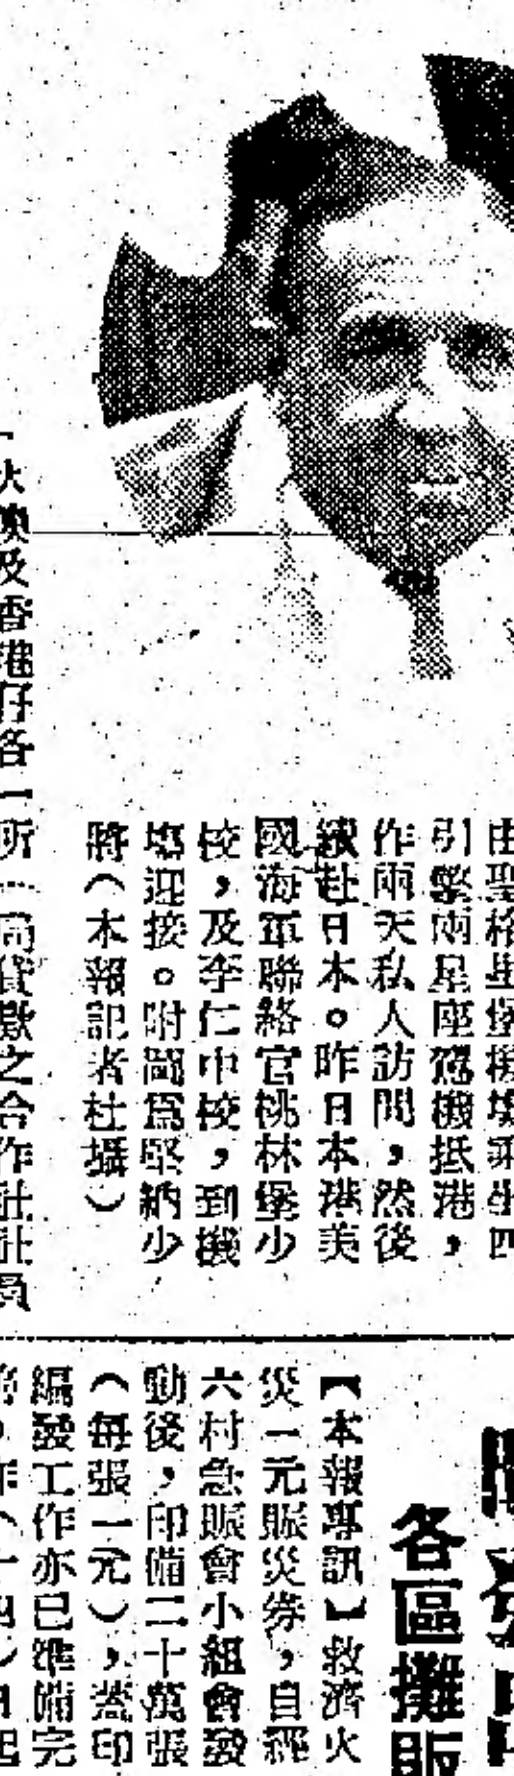 由聖格
引擎兩星座機抵港，
作兩天私人訪問，然後
續赴日本。昨日本港美
國海軍聯絡官桃林堡少
校，及李仁中校，到機
塲迎接。附圖爲堅納少
將（本報記者杜攝）
及香港仔各一所
之合作社社員
各區攤販
【本報專訊】救濟火
災一元賑災券，自經
六村急賑會小組會發
動後，印備二十萬張
（每張一元），蓋印
編發工作亦已準備完